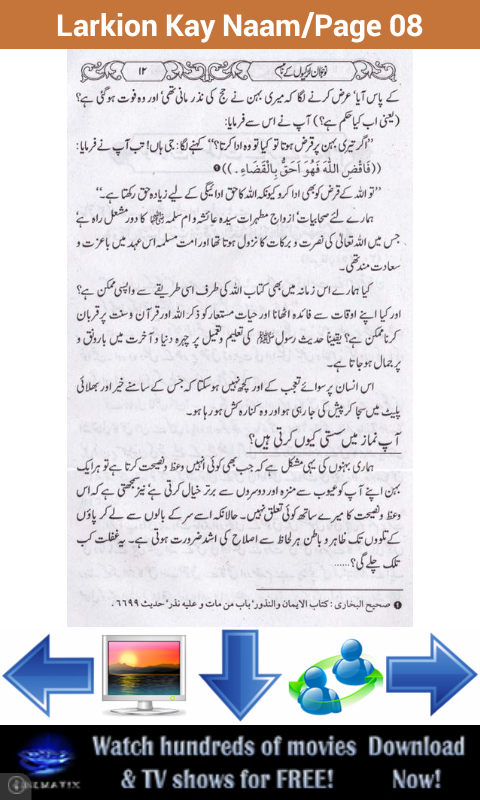 Larkion Kay Naam/Page 08
نوجوان لڑکیوں کے نام
۱۲
کے پاس آیا، عرض کرنے لگا کہ میری بہن نے حج کی نذر مانی تھی، اور وہ فوت ہو گئی ہے؟
(یعنی اب کیا حکم ہے؟) آپ نے اس سے فرمایا:
”اگر تیری بہن پر قرض ہوتا تو کیا تو وہ ادا کرتا؟“ کہنے لگا: جی ہاں! تب آپ نے فرمایا:
((فَاقْضِ اللّٰهَ فَهُوَ اَحَقُّ بِالْقَضَاءِ۔)) ❶
”تو اللہ کے قرض کو بھی ادا کرو کیونکہ اللہ کا حق ادائیگی کے لیے زیادہ حق رکھتا ہے۔“
ہمارے لئے صحابیات، ازواج مطہرات سیدہ عائشہ و ام سلمہ کا دور مشعل راہ ہے
جس میں اللہ تعالیٰ کی نصرت و برکات کا نزول ہوتا تھا اور امت مسلمہ اس عہد میں باعزت و
سعادت مند تھی۔
کیا ہمارے اس زمانہ میں بھی کتاب اللہ کی طرف اسی طریقے سے واپسی ممکن ہے؟
اور کیا اپنے اوقات سے فائدہ اٹھانا اور حیات مستعار کو ذکر اللہ اور قرآن و سنت پر قربان
کرنا ممکن ہے؟ یقیناً حدیث رسول ﷺ کی تعلیم و تعمیل پر چہرہ دنیا و آخرت میں بارونق و
پر جمال ہو جاتا ہے۔
اس انسان پر سوائے تعجب کے اور کچھ نہیں ہو سکتا کہ جس کے سامنے خیر اور بھلائی
پلیٹ میں سجا کر پیش کی جا رہی ہو اور وہ کنارہ کش ہو رہا ہو۔
آپ نماز میں سستی کیوں کرتی ہیں؟
ہماری بہنوں کی یہی مشکل ہے کہ جب بھی کوئی انہیں وعظ و نصیحت کرتا ہے تو ہر ایک
بہن اپنے آپ کو عیوب سے منزہ اور دوسروں سے برتر خیال کرتی ہے، نیز سمجھتی ہے کہ اس
وعظ و نصیحت کا میرے ساتھ کوئی تعلق نہیں۔ حالانکہ اسے سر کے بالوں سے لے کر پاؤں
کے تلووں تک ظاہر و باطن ہر لحاظ سے اصلاح کی اشد ضرورت ہوتی ہے۔ یہ غفلت کب
تلک چلے گی؟......
❶ صحیح البخاری: کتاب الایمان والنذور، باب من مات و علیہ نذر، حدیث ٦٦٩٩۔
Watch hundreds of movies
& TV shows for FREE!
Download
Now!